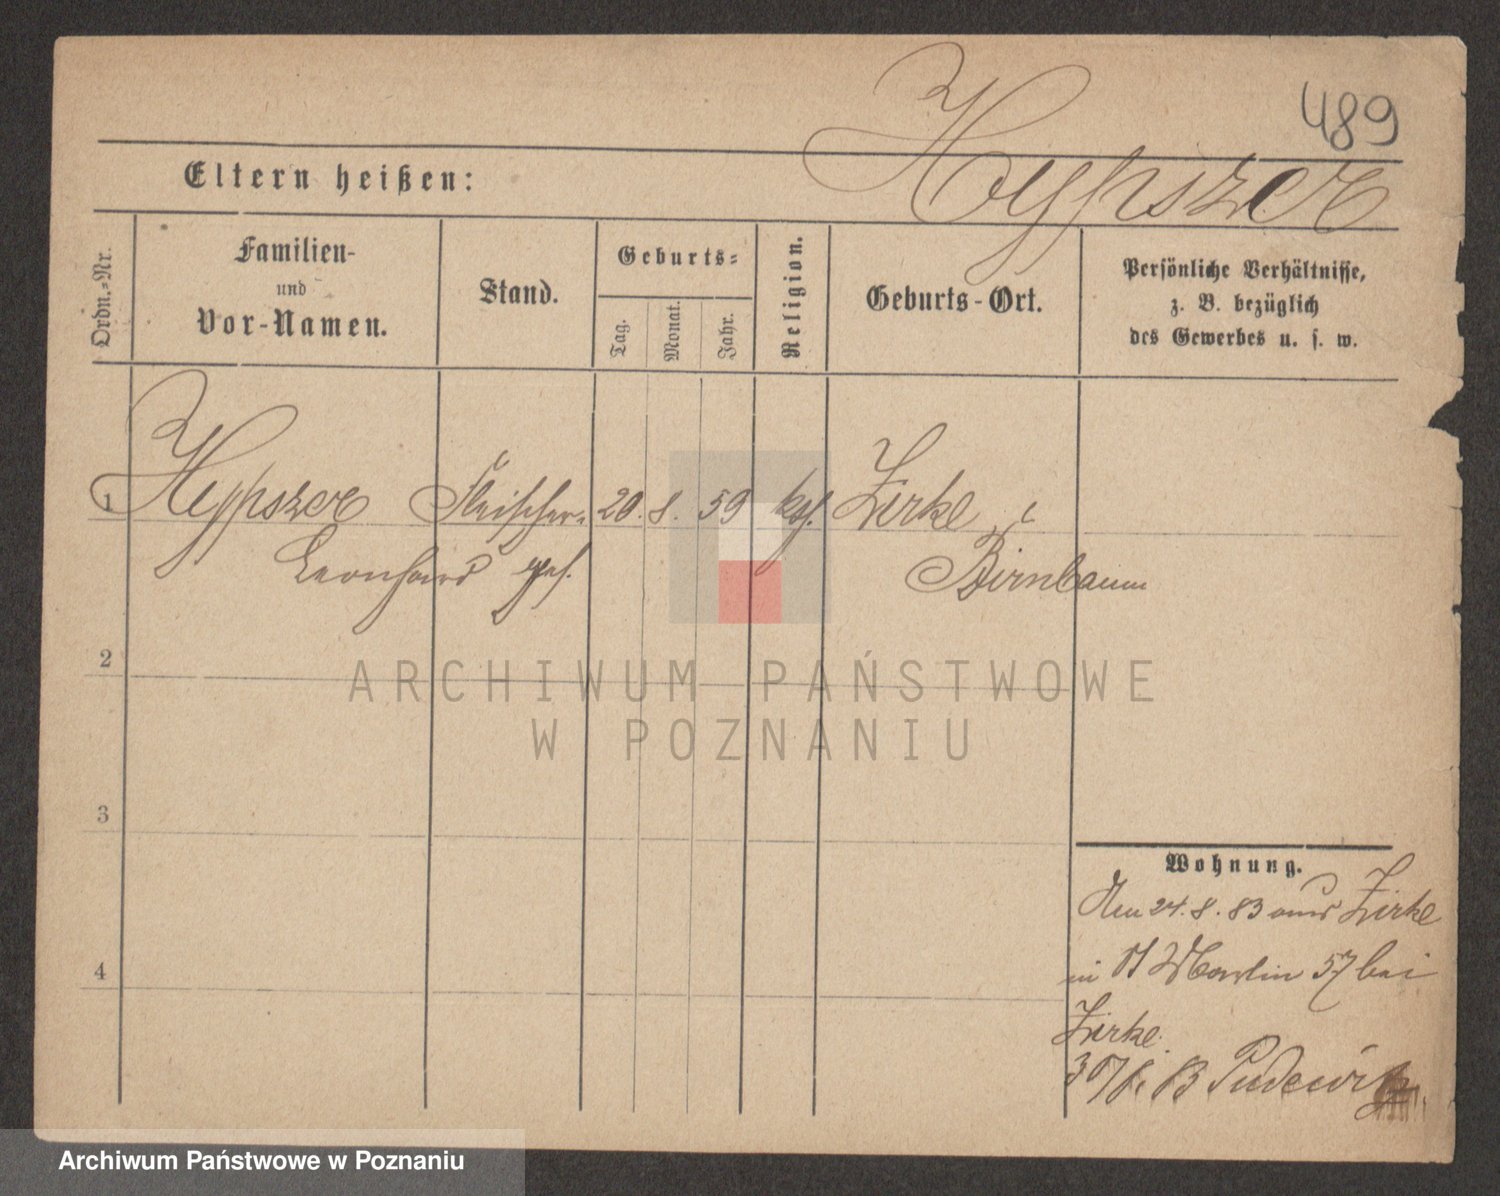 489
Heypszer
Eltern heißen:
Ordn.-Nr.
Familien-
und
Vor-Namen.
Stand.
Geburts-
Tag.
Monat.
Jahr.
Religion.
Geburts-Ort.
Persönliche Verhältnisse,
z. B. bezüglich
des Gewerbes u. s. w.
1 Heypszer Fleischer- 20. 8. 59 kth. Zirke
Leonhard ges. Birnbaum
2
3
4
Wohnung.
Den 24. 8. 83 aus Zirke
in St Martin 57 bei
Zirke.
Pudewitz
ARCHIWUM PAŃSTWOWE
W POZNANIU
Archiwum Państwowe w Poznaniu